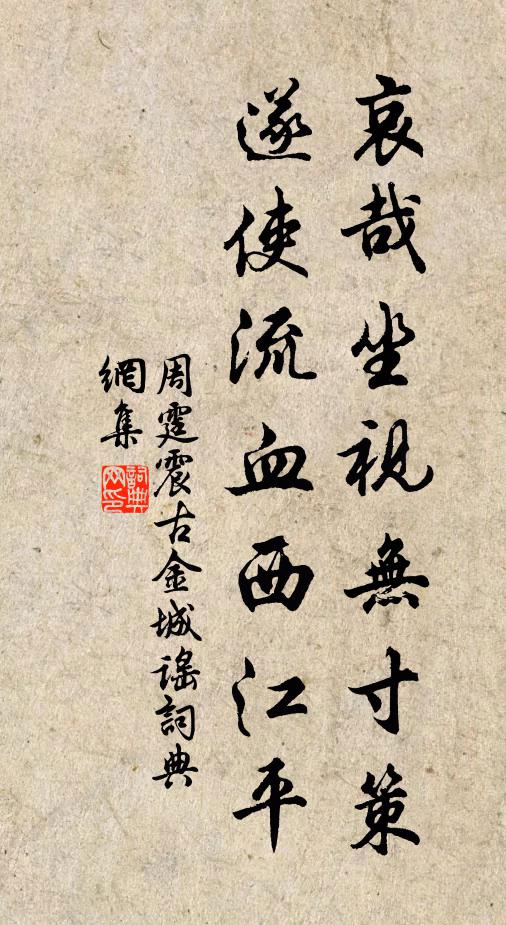 哀哉坐視無寸策
遂使流血西江平
周霆震古金城谣詞典
網集
詞典
网印